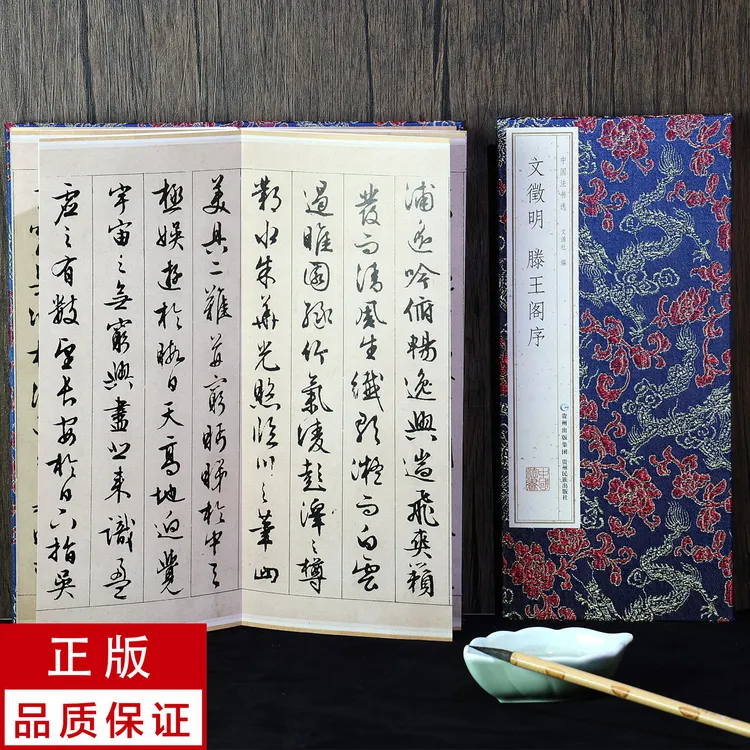 浦遙吟俯暢逸興遄飛爽籟
發而清風生纖歌凝而白雲
遏睢園綠竹氣凌彭澤之樽
鄴水朱華光照臨川之筆四
美具二難并窮眄睇於中天
極娛遊於暇日天高地迥覺
宇宙之無窮興盡悲來識盈
虛之有數望長安於日下指吳
中国法书选
编
文徵明 滕王阁序
贵州出版集团
贵州民族出版社
正版
品质保证